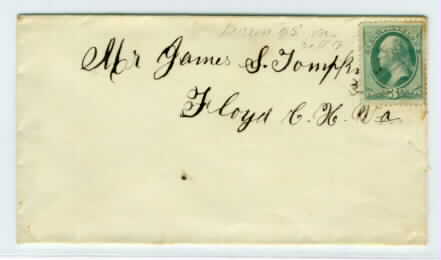 Mr James S. Tompkins
Floyd C. H. Va
3